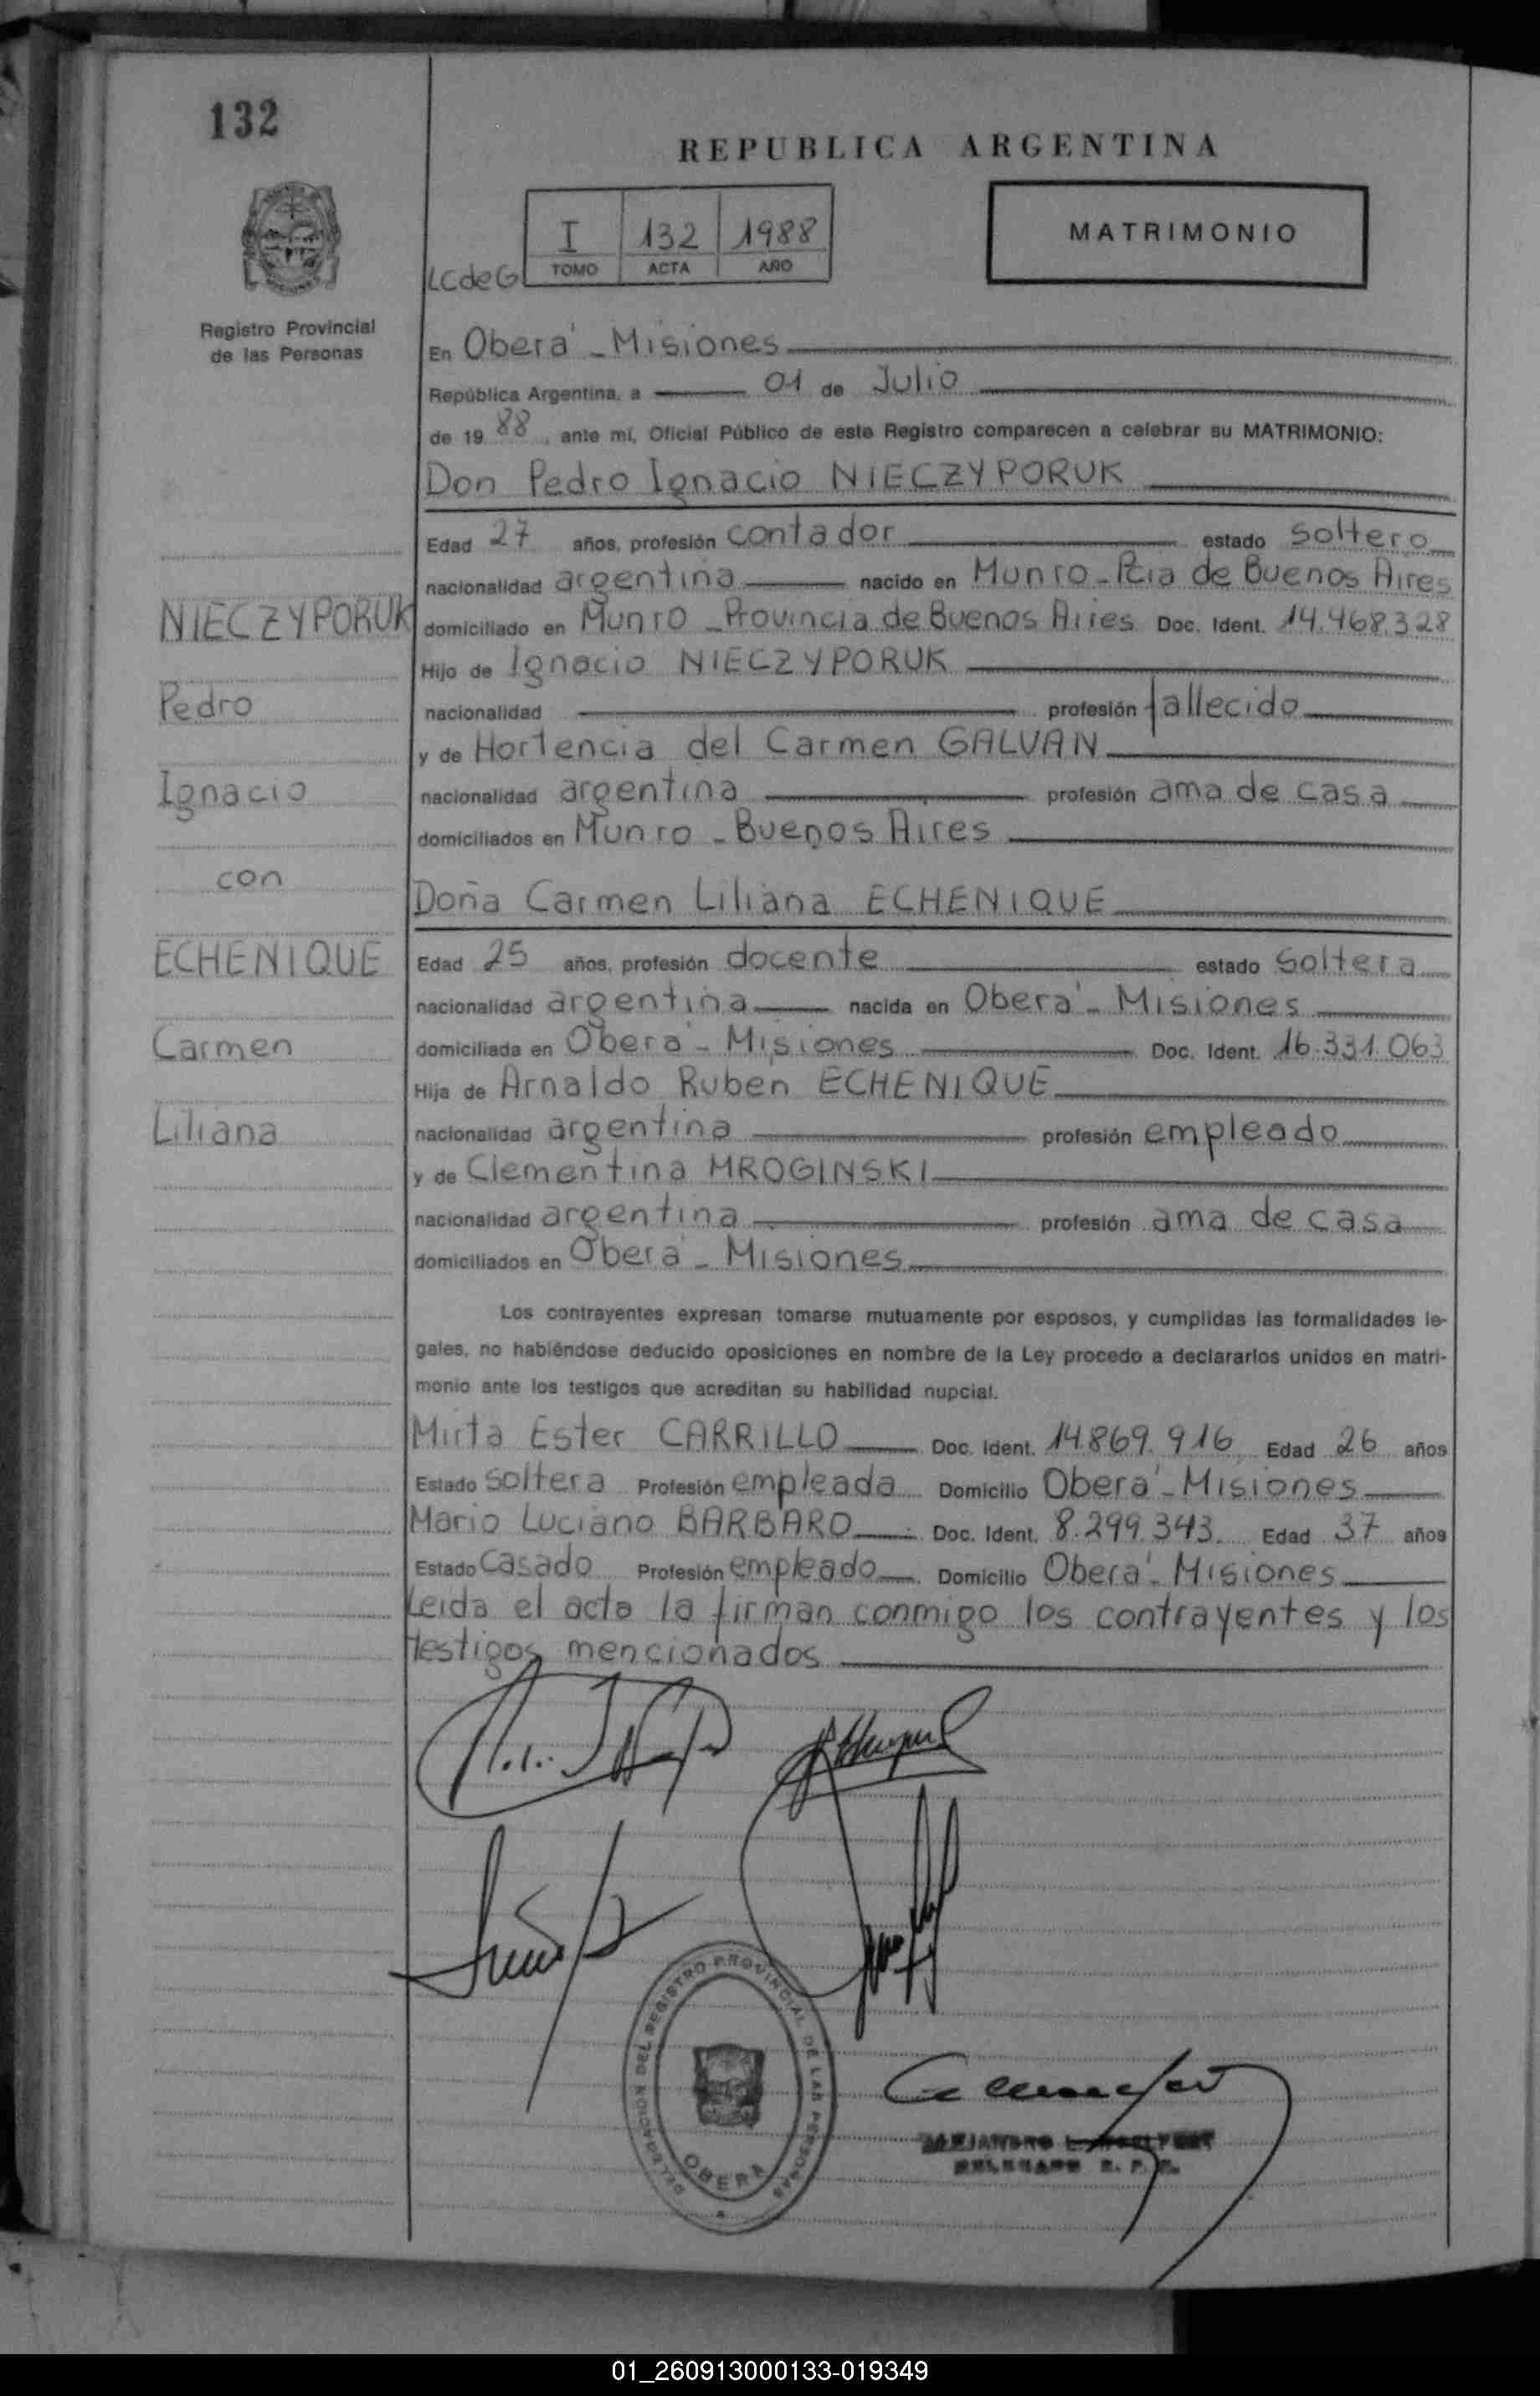 132
REPUBLICA ARGENTINA
I 132 1988
TOMO ACTA AÑO
MATRIMONIO
LCdeG
Registro Provincial
de las Personas
En Oberá - Misiones
República Argentina, a 01 de Julio
de 19 88, ante mí, Oficial Público de este Registro comparecen a celebrar su MATRIMONIO:
Don Pedro Ignacio NIECZYPORUK
Edad 27 años, profesión contador estado soltero
nacionalidad argentina nacido en Munro - Pcia de Buenos Aires
NIECZYPORUK
domiciliado en Munro - Provincia de Buenos Aires Doc. Ident. 14.468.328
Hijo de Ignacio NIECZYPORUK
Pedro
nacionalidad profesión fallecido
y de Hortencia del Carmen GALVAN
Ignacio
nacionalidad argentina profesión ama de casa
domiciliados en Munro - Buenos Aires
con
Doña Carmen Liliana ECHENIQUE
ECHENIQUE
Edad 25 años, profesión docente estado soltera
nacionalidad argentina nacida en Oberá - Misiones
Carmen
domiciliada en Oberá - Misiones Doc. Ident. 16.331.063
Hija de Arnaldo Ruben ECHENIQUE
Liliana
nacionalidad argentina profesión empleado
y de Clementina MROGINSKI
nacionalidad argentina profesión ama de casa
domiciliados en Oberá - Misiones
Los contrayentes expresan tomarse mutuamente por esposos, y cumplidas las formalidades le-
gales, no habiéndose deducido oposiciones en nombre de la Ley procedo a declararlos unidos en matri-
monio ante los testigos que acreditan su habilidad nupcial.
Mirta Ester CARRILLO Doc. Ident. 14.869.916 Edad 26 años
Estado soltera Profesión empleada Domicilio Oberá - Misiones
Mario Luciano BARBARO Doc. Ident. 8.299.343 Edad 37 años
Estado casado Profesión empleado Domicilio Oberá - Misiones
Leida el acta la firman conmigo los contrayentes y los
testigos mencionados
DELEGACION DEL REGISTRO PROVINCIAL DE LAS PERSONAS
OBERA
DELEGADO R. P. P.
01_260913000133-019349